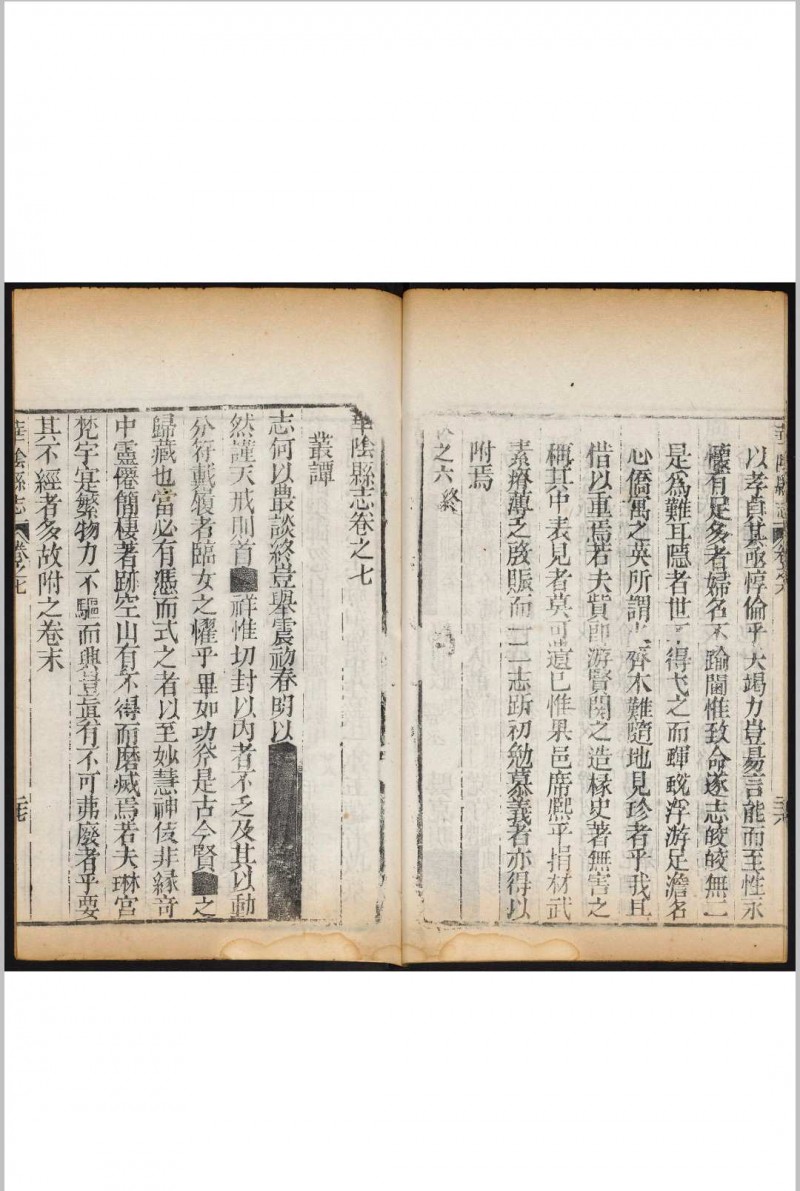 華陰縣志 卷之六 二十六
以孝貞其亟惇倫乎夫竭力豈易言能而至性永
有足多者婦名不踰閫惟致命遂志皎皎無二
是為難耳隱者世 得弋之而蟬蛻浮游足澹名
心僑寓之英所謂 喬木難隨地見珍者乎我且
借以重焉若夫貲郎游賢關之造椽史著無害之
稱其中表見者莫可遺已惟果邑席熙乎捐材武
素瘠薄乏啟賑而一二志斯初勉慕義者亦得以
附焉
之六終
華陰縣志卷之七
叢譚
志何以叢談終豈舉震初春明以
然謹天戒則首 祥惟切封以內者不乏及其以動
分符戴 者臨女之懼乎畢如功 是古今賢 之
歸藏也當必有憑而式之者以至妙慧神伎非緣奇
中靈僊簡棲著跡空山有不得而磨滅焉若夫琳宮
梵宇寔繁物力不驅而興豈眞有不可弗廢者乎要
其不經者多故附之卷末
華陰縣志 卷之七